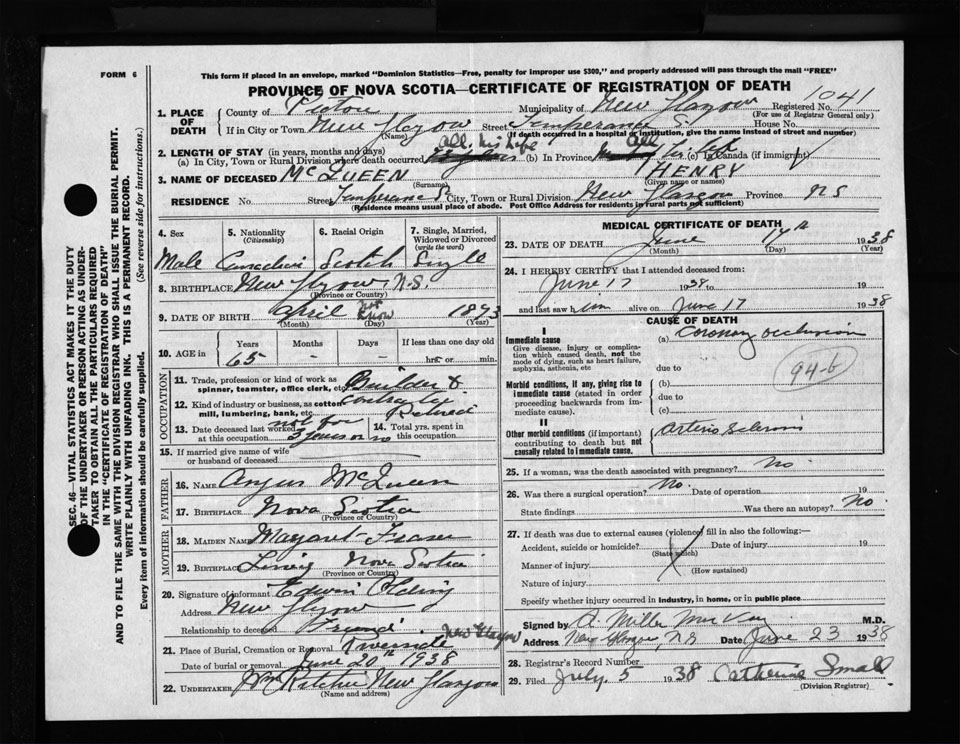 FORM 6
This form if placed in an envelope, marked "Dominion Statistics—Free, penalty for improper use $300," and properly addressed will pass through the mail "FREE"
PROVINCE OF NOVA SCOTIA—CERTIFICATE OF REGISTRATION OF DEATH
1. PLACE OF DEATH County of Pictou Municipality of New Glasgow Registered No. 1041
(For use of Registrar General only)
If in City or Town New Glasgow Street Temperance S. House No.
(Name) (If death occurred in a hospital or institution, give the name instead of street and number)
2. LENGTH OF STAY (in years, months and days)
(a) In City, Town or Rural Division where death occurred All his life (b) In Province All his life (c) In Canada (if immigrant)
3. NAME OF DECEASED McQUEEN HENRY
(Surname) (Given name or names)
RESIDENCE No. Street Temperance S. City, Town or Rural Division New Glasgow Province N S
(Residence means usual place of abode. Post Office Address for residents in rural parts not sufficient)
SEC. 46—VITAL STATISTICS ACT MAKES IT THE DUTY
OF THE UNDERTAKER OR PERSON ACTING AS UNDER-
TAKER TO OBTAIN ALL THE PARTICULARS REQUIRED
IN THE "CERTIFICATE OF REGISTRATION OF DEATH"
AND TO FILE THE SAME WITH THE DIVISION REGISTRAR WHO SHALL ISSUE THE BURIAL PERMIT.
WRITE PLAINLY WITH UNFADING INK. THIS IS A PERMANENT RECORD.
Every item of information should be carefully supplied. (See reverse side for instructions.)
4. Sex 5. Nationality (Citizenship) 6. Racial Origin 7. Single, Married, Widowed or Divorced (write the word)
Male Canadian Scotch Single
8. BIRTHPLACE New Glasgow N.S.
(Province or Country)
9. DATE OF BIRTH April not know 1873
(Month) (Day) (Year)
10. AGE in Years Months Days If less than one day old
65 - - hrs. or min.
OCCUPATION
11. Trade, profession or kind of work as spinner, teamster, office clerk, etc. Builder &
12. Kind of industry or business, as cotton mill, lumbering, bank, etc. Contractor Retired
13. Date deceased last worked at this occupation not for 3 years or so 14. Total yrs. spent in this occupation
15. If married give name of wife or husband of deceased
FATHER
16. NAME Angus McQueen
17. BIRTHPLACE Nova Scotia
(Province or Country)
MOTHER
18. MAIDEN NAME Margaret Fraser
19. BIRTHPLACE Nova Scotia
(Province or Country)
20. Signature of informant Edwin
Address New Glasgow
Relationship to deceased Friend
21. Place of Burial, Cremation or Removal Riverside New Glasgow
Date of burial or removal June 20th 1938
22. UNDERTAKER Ritchie New Glasgow
(Name and address)
MEDICAL CERTIFICATE OF DEATH
23. DATE OF DEATH June 17th 1938
(Month) (Day) (Year)
24. I HEREBY CERTIFY that I attended deceased from:
June 17 1938 to 19
and last saw him alive on June 17 1938
CAUSE OF DEATH
I
Immediate cause
Give disease, injury or complication which caused death, not the mode of dying, such as heart failure, asphyxia, asthenia, etc
(a) Coronary occlusion
due to
94-b
Morbid conditions, if any, giving rise to immediate cause (stated in order proceeding backwards from immediate cause).
(b)
due to
(c)
II
Other morbid conditions (if important) contributing to death but not causally related to immediate cause.
Arterio Sclerosis
25. If a woman, was the death associated with pregnancy? No.
26. Was there a surgical operation? No. Date of operation 19
State findings Was there an autopsy? No
27. If death was due to external causes (violence) fill in also the following:—
Accident, suicide or homicide? Date of injury 19
(State which)
Manner of injury
(How sustained)
Nature of injury
Specify whether injury occurred in industry, in home, or in public place
Signed by A. Miller MacKay M.D.
Address New Glasgow, N.S. Date June 23 1938
28. Registrar's Record Number
29. Filed July 5 1938 Catherine Small
(Division Registrar)